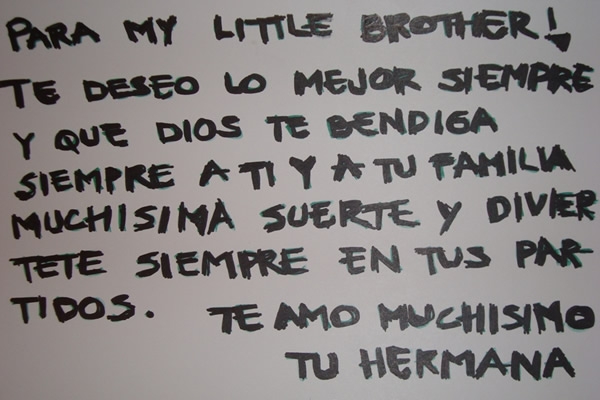 PARA MY LITTLE BROTHER!
TE DESEO LO MEJOR SIEMPRE
Y QUE DIOS TE BENDIGA
SIEMPRE A TI Y A TU FAMILIA
MUCHISIMA SUERTE Y DIVIER
TETE SIEMPRE EN TUS PAR-
TIDOS.
TE AMO MUCHISIMO
TU HERMANA